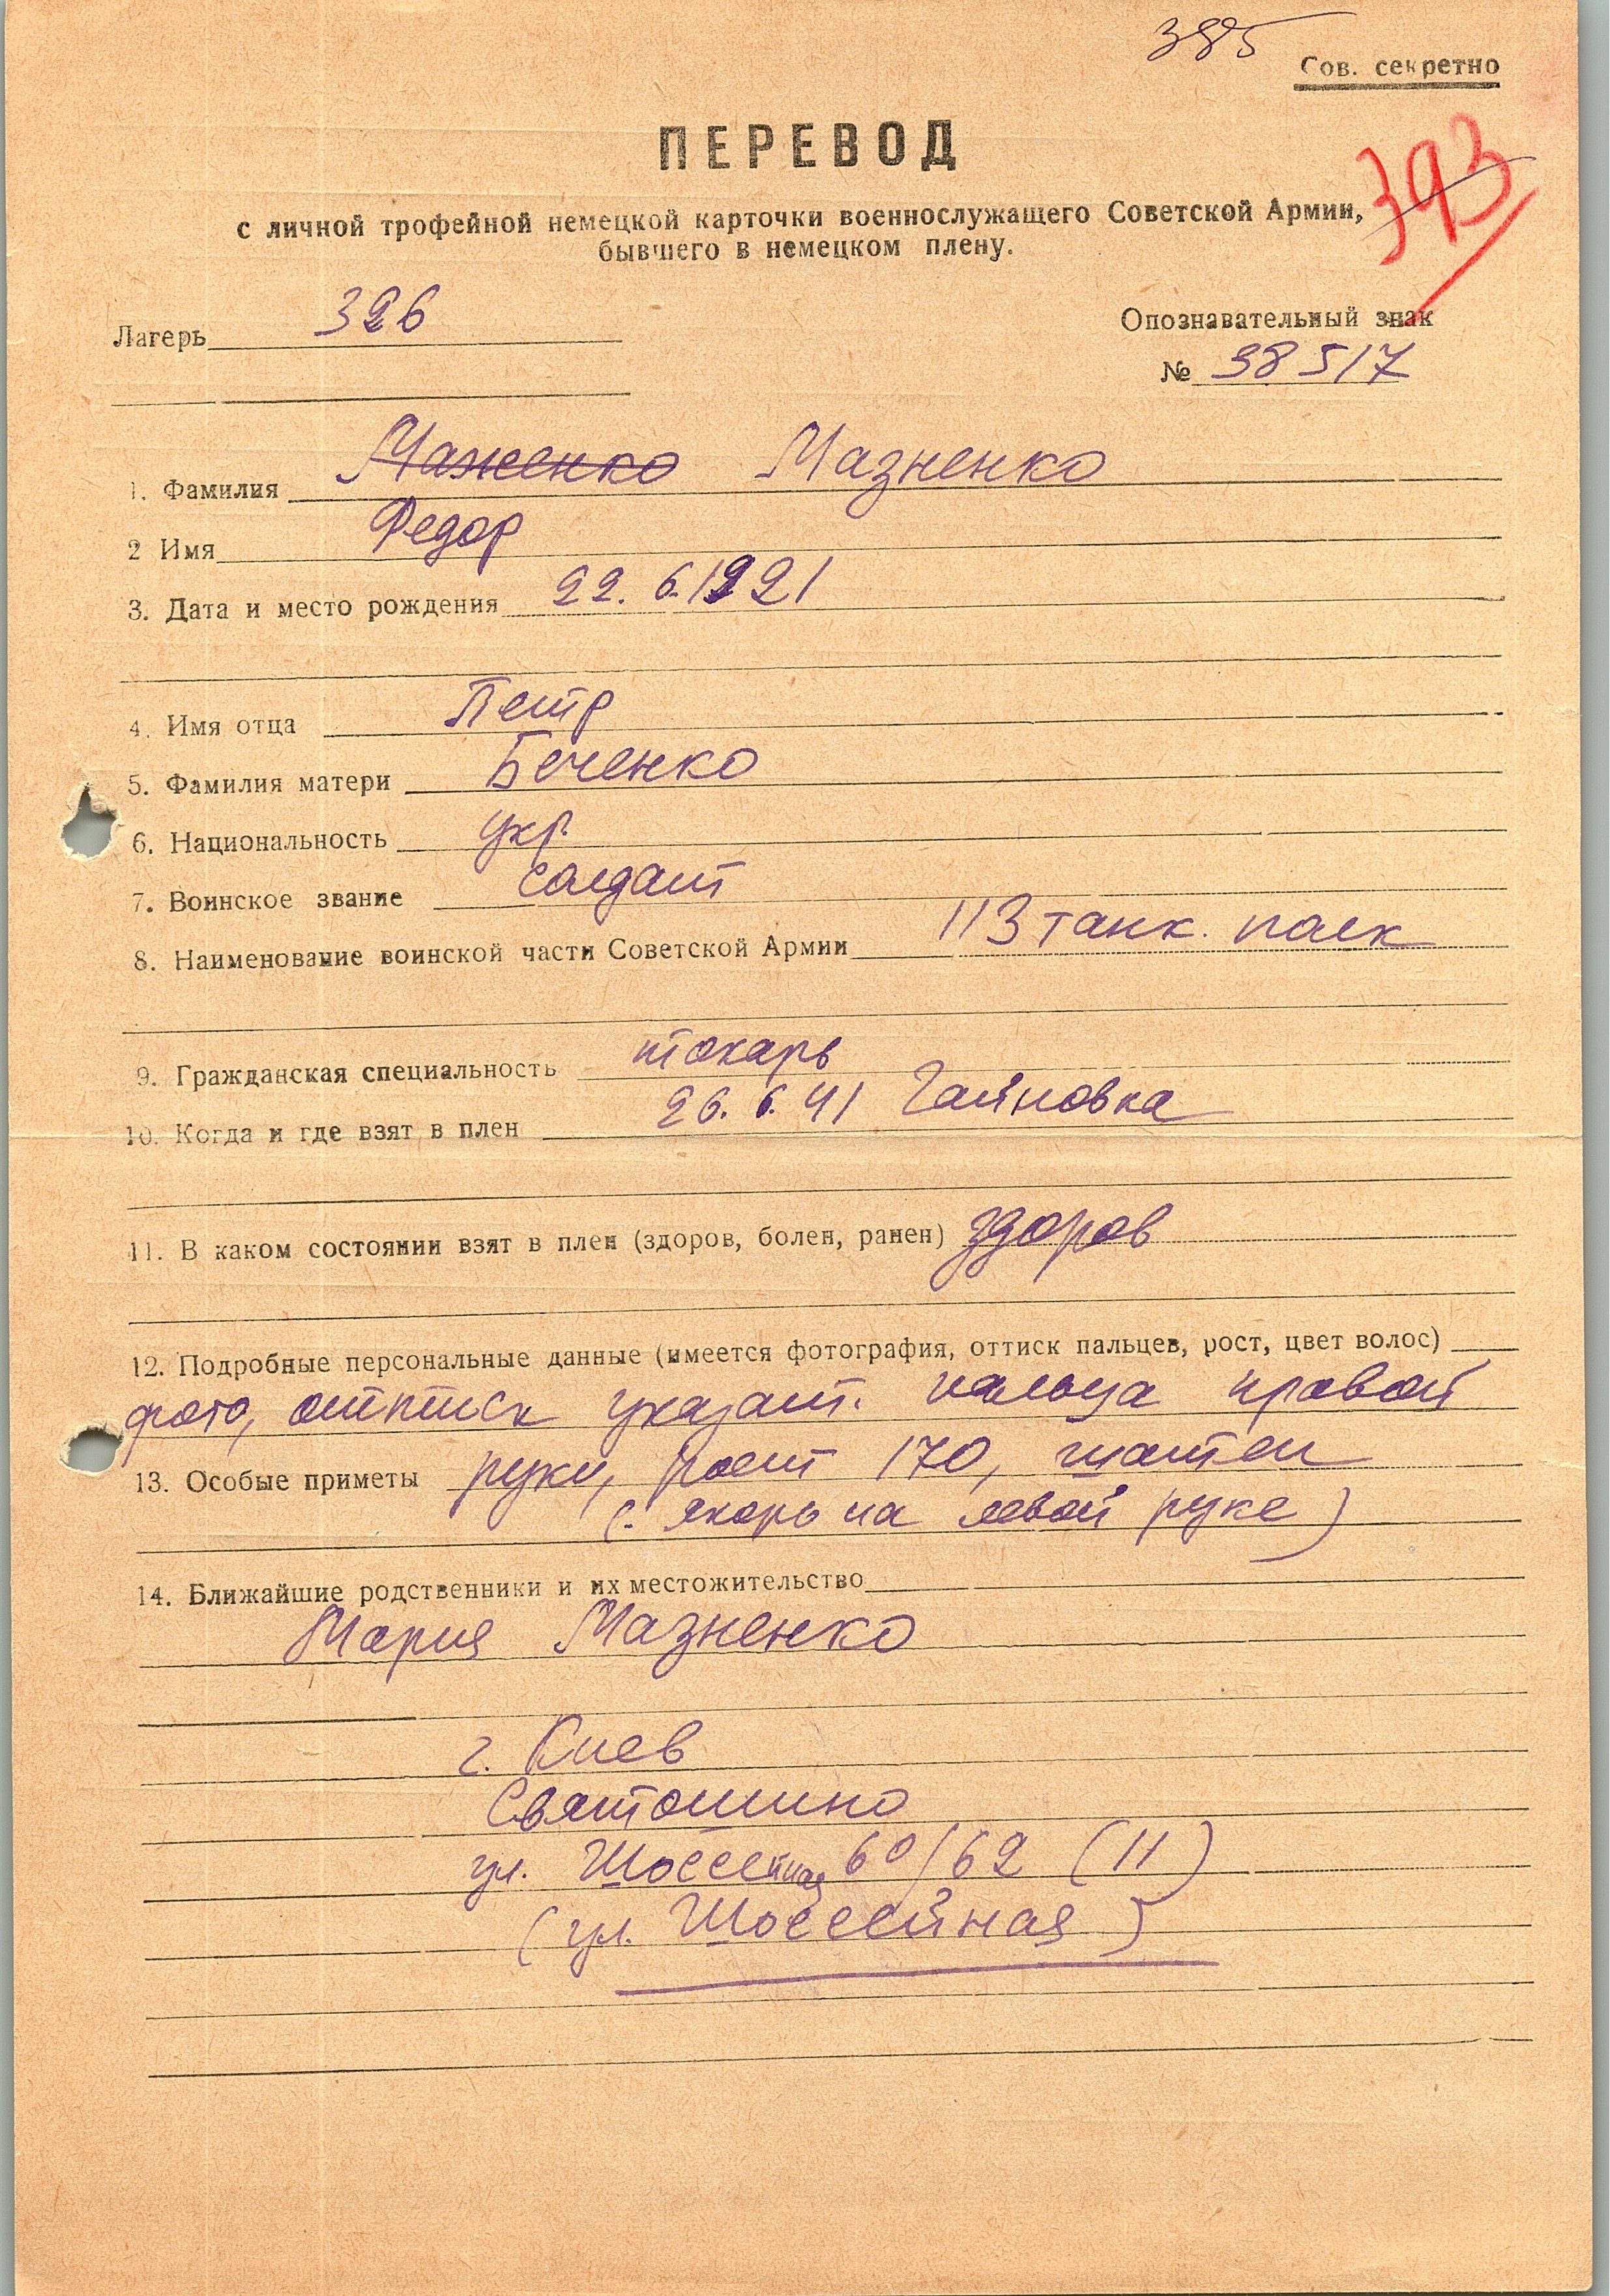 385
Сов. секретно
ПЕРЕВОД
393
с личной трофейной немецкой карточки военнослужащего Советской Армии,
бывшего в немецком плену.
Лагерь 326
Опознавательный знак
№ 38517
1. Фамилия Маженко Мазненко
2 Имя Федор
3. Дата и место рождения 22. 6. 1921
4. Имя отца Петр
5. Фамилия матери Беченко
6. Национальность укр.
7. Воинское звание солдат
8. Наименование воинской части Советской Армии 113 танк. полк
9. Гражданская специальность токарь
10. Когда и где взят в плен 26. 6. 41 Гайновка
11. В каком состоянии взят в плен (здоров, болен, ранен) здоров
12. Подробные персональные данные (имеется фотография, оттиск пальцев, рост, цвет волос)
фото, оттиск указат. пальца правой
13. Особые приметы руки, рост 170, шатен
(. якорь на левой руке)
14. Ближайшие родственники и их местожительство
Мария Мазненко
г. Киев
Святошино
ул. Шоссейная 60/62 (11)
(ул. Шоссейная)